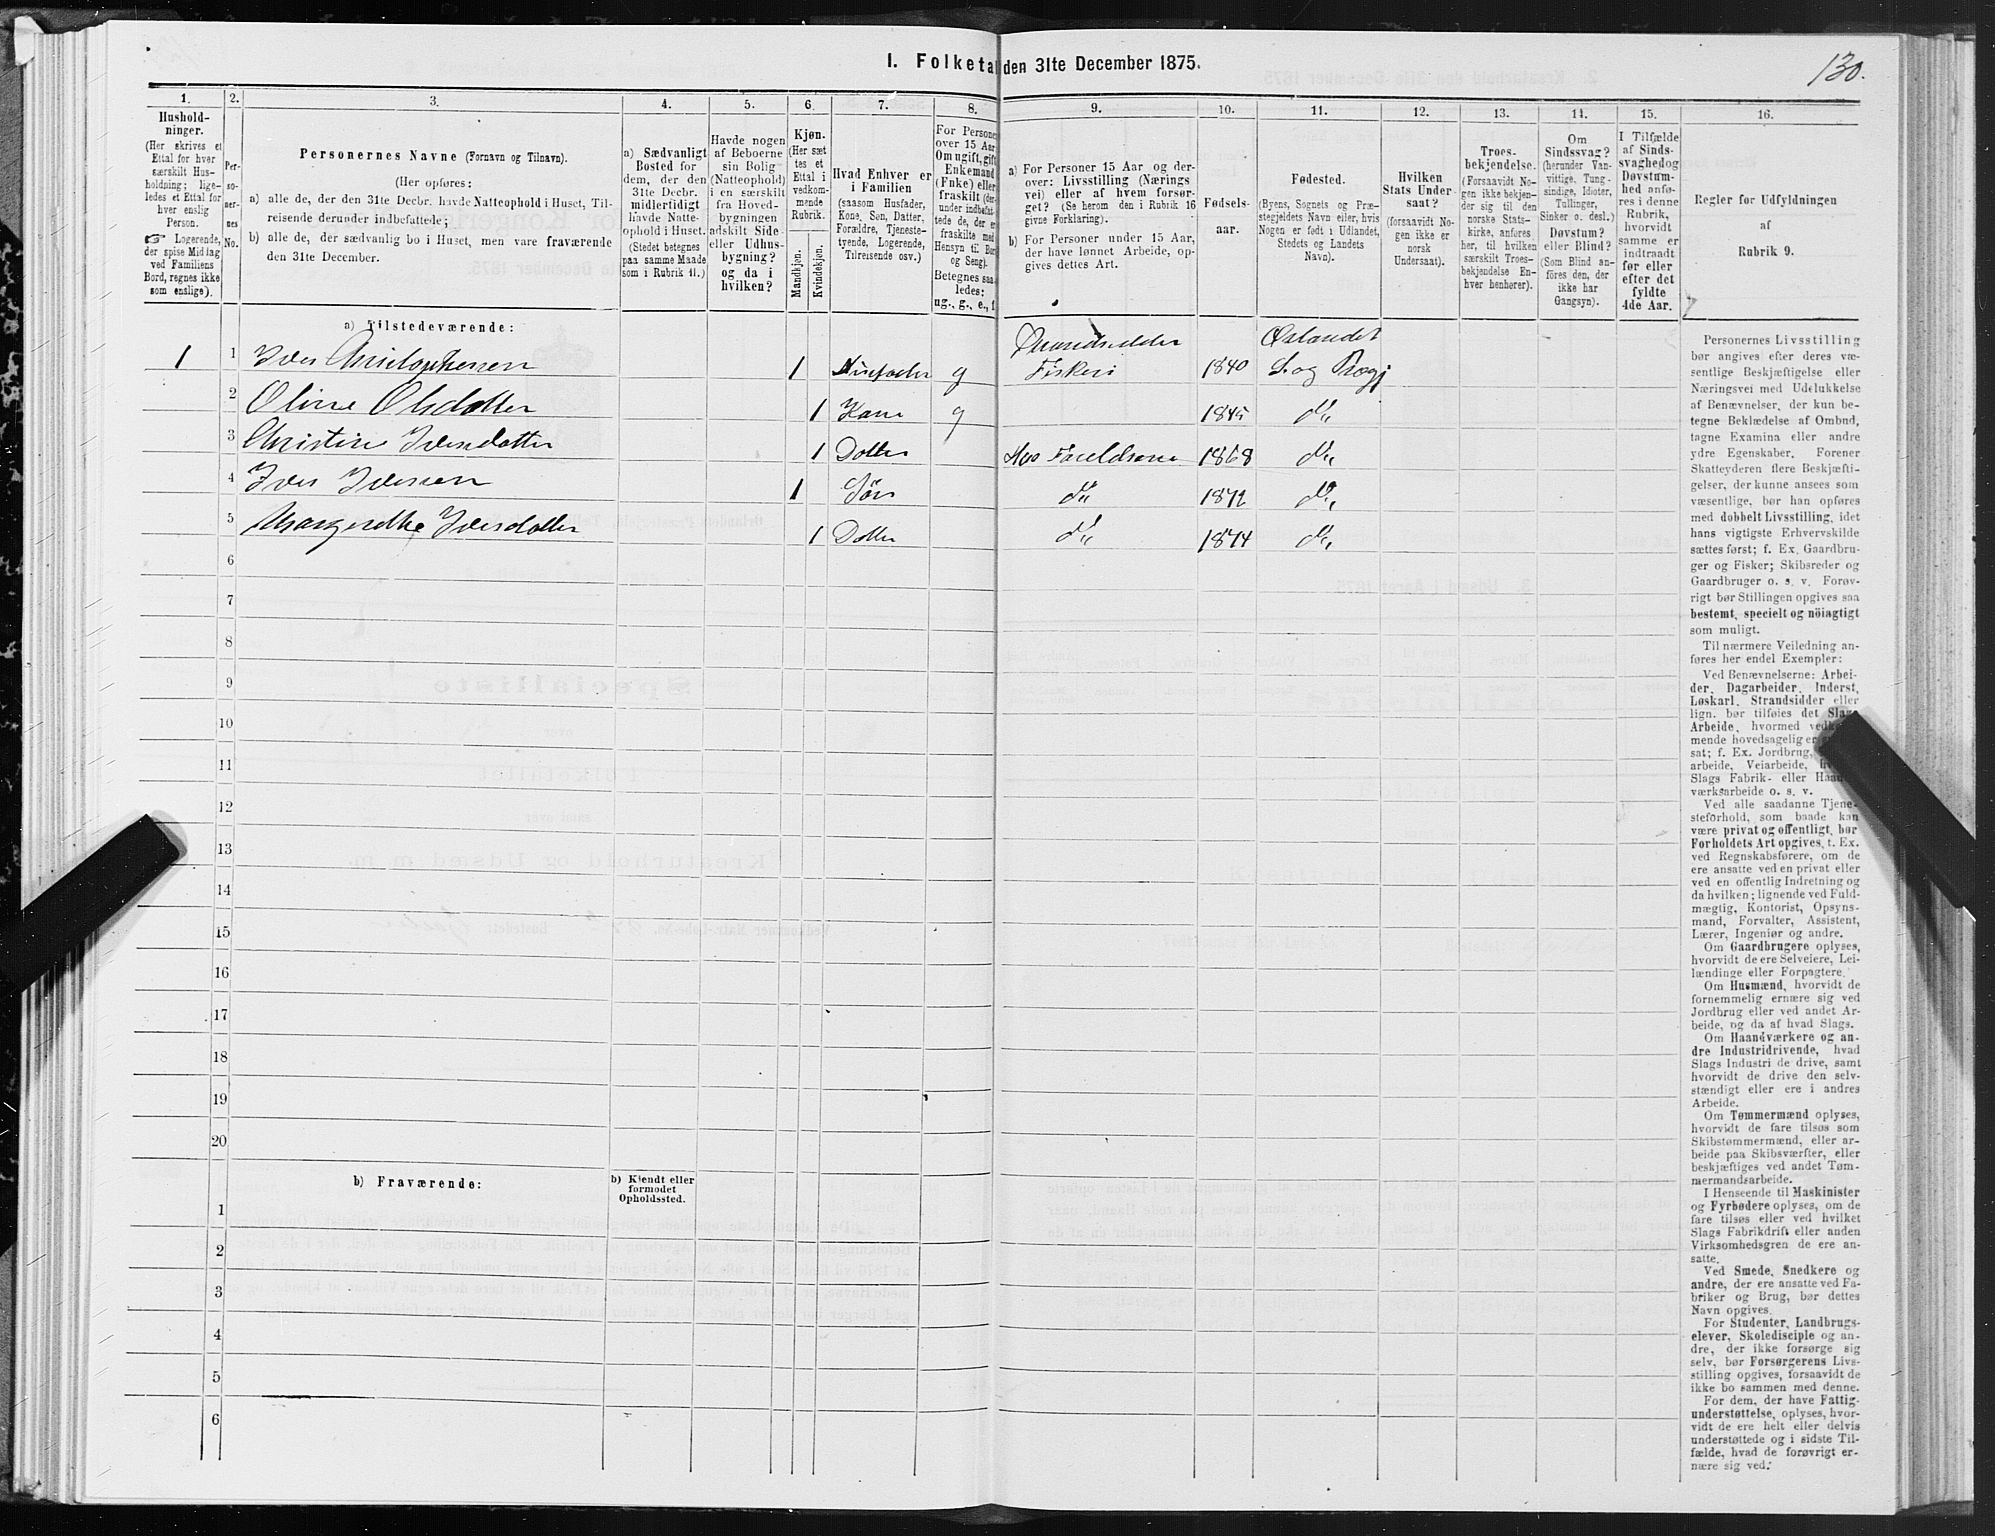 130.
I. Folketal den 31te December 1875.
1. 2. 3. 4. 5. 6. 7. 8. 9. 10. 11. 12. 13. 14. 15. 16.
Hushold-
ninger.
(Her skrives et
Ettal for hver
særskilt Hus-
holdning; lige-
ledes et Ettal for
hver enslig
Person.
☞ Logerende,
der spise Middag
ved Familiens
Bord, regnes ikke
som enslige).
Per-
so-
ner-
nes
No.
Personernes Navne (Fornavn og Tilnavn).
(Her opføres:
a) alle de, der den 31te Decbr. havde Natteophold i Huset, Til-
reisende derunder indbefattede;
b) alle de, der sædvanlig bo i Huset, men vare fraværende
den 31te December.
a) Sædvanligt
Bosted for
dem, der den
31te Decbr.
midlertidigt
havde Natte-
ophold i Huset.
(Stedet betegnes
paa samme Maade
som i Rubrik 11.)
Havde nogen
af Beboerne
sin Bolig
(Natteophold)
i en særskilt
fra Hoved-
bygningen
adskilt Side-
eller Udhus-
bygning?
og da i
hvilken?
Kjøn.
(Her sæt-
tes et
Ettal i
vedkom-
mende
Rubrik.
Mandkjøn.
Kvindekjøn.
Hvad Enhver er
i Familien
(saasom Husfader,
Kone, Søn, Datter,
Forældre, Tjeneste-
tyende, Logerende,
Tilreisende osv.)
For Personer
over 15 Aar
Om ugift, gift,
Enkemand
(Enke) eller
fraskilt (der-
under indbefat-
tede de, der ere
fraskilte med
Hensyn til Bord
og Seng).
Betegnes saa-
ledes:
ug., g., e., f.
a) For Personer 15 Aar og der-
over: Livsstilling (Nærings
vei) eller af hvem forsør-
get? (Se herom den i Rubrik 16
givne Forklaring).
b) For Personer under 15 Aar,
der have lønnet Arbeide, op-
gives dettes Art.
Fødsels-
aar.
Fødested.
(Byens, Sognets og Præ-
stegjeldets Navn eller, hvis
Nogen er født i Udlandet,
Stedets og Landets
Navn).
Hvilken
Stats Under-
saat?
(forsaavidt No-
gen ikke er
norsk
Undersaat).
Troes-
bekjendelse.
(Forsaavidt No-
gen ikke bekjen-
der sig til den
norske Stats-
kirke, anføres
her, til hvilken
særskilt Troes-
bekjendelse En-
hver henhører).
Om
Sindssvag?
(herunder Van-
vittige, Tung-
sindige, Idioter,
Tullinger,
Sinker o. desl.)
Døvstum?
eller Blind?
(Som Blind an-
føres den, der
ikke har
Gangsyn).
I Tilfælde
af Sinds-
svaghed og
Døvstum-
hed anfø-
res i denne
Rubrik,
hvorvidt
samme er
indtraadt
før eller
efter det
fyldte
4de Aar.
Regler for Udfyldningen
af
Rubrik 9.
a) Tilstedeværende:
Strandsidder Ørlandet
1 1 Iver Christophersen 1 Husfader g Fiskeri 1840 S. og Prægj
2 Oline Olsdatter 1 Kone g 1845 do
3 Christine Iversdatter 1 Datter Hos Forældrene 1868 do
4 Iver Iversen 1 Søn do 1872 do
5 Margrethe Iversdatter 1 Datter do 1874 do
6
7
8
9
10
11
12
13
14
15
16
17
18
19
20
b) Fraværende:
b) Kjendt eller
formodet
Opholdssted.
1
2
3
4
5
6
Personernes Livsstilling
bør angives efter deres væ-
sentlige Beskjæftigelse eller
Næringsvei med Udelukkelse
af Benævnelser, der kun be-
tegne Beklædelse af Ombud,
tagne Examina eller andre
ydre Egenskaber. Forener
Skatteyderen flere Beskjæfti-
gelser, der kunne ansees som
væsentlige, bør han opføres
med dobbelt Livsstilling, idet
hans vigtigste Erhvervskilde
sættes først; f. Ex. Gaardbru-
ger og Fisker; Skibsreder og
Gaardbruger o. s. v. Forøv-
rigt bør Stillingen opgives saa
bestemt, specielt og nöiagtigt
som muligt.
Til nærmere Veiledning an-
føres her endel Exempler:
Ved Benævnelserne: Arbei-
der, Dagarbeider, Inderst,
Løskarl, Strandsidder eller
lign. bør tilføies det Slags
Arbeide, hvormed vedkom-
mende hovedsagelig er
sat; f. Ex. Jordbrug,
arbeide, Veiarbeide,
Slags Fabrik- eller Haand-
værksarbeide o. s. v.
Ved alle saadanne Tjene-
steforhold, som baade kan
være privat og offentligt, bør
Forholdets Art opgives, f. Ex.
ved Regnskabsførere, om de
ere ansatte ved en privat eller
ved en offentlig Indretning og
da hvilken; lignende ved Fuld-
mægtig, Kontorist, Opsyns-
mand, Forvalter, Assistent,
Lærer, Ingeniør og andre.
Om Gaardbrugere oplyses,
hvorvidt de ere Selveiere, Lei-
lændinge eller Forpagtere.
Om Husmænd, hvorvidt de
fornemmelig ernære sig ved
Jordbrug eller ved andet Ar-
beide, og da af hvad Slags.
Om Haandværkere og an-
dre Industridrivende, hvad
Slags Industri de drive, samt
hvorvidt de drive den selv-
stændigt eller ere i andres
Arbeide.
Om Tømmermænd oplyses,
hvorvidt de fare tilsøs som
Skibstømmermænd, eller ar-
beide paa Skibsværfter, eller
beskjæftiges ved andet Tøm-
mermandsarbeide.
I Henseende til Maskinister
og Fyrbødere oplyses, om de
fare tilsøs eller ved hvilket
Slags Fabrikdrift eller anden
Virksomhedsgren de ere an-
satte.
Ved Smede, Snedkere og
andre, der ere ansatte ved Fa-
briker og Brug, bør dettes
Navn opgives.
For Studenter, Landbrugs-
elever, Skoledisciple og an-
dre, der ikke forsørge sig
selv, bør Forsørgerens Livs-
stilling opgives, forsaavidt de
ikke bo sammen med denne.
For dem, der have Fattig-
understøttelse, oplyses, hvor-
vidt de ere helt eller delvis
understøttede og i sidste Til-
fælde, hvad de forøvrigt er-
nære sig ved.